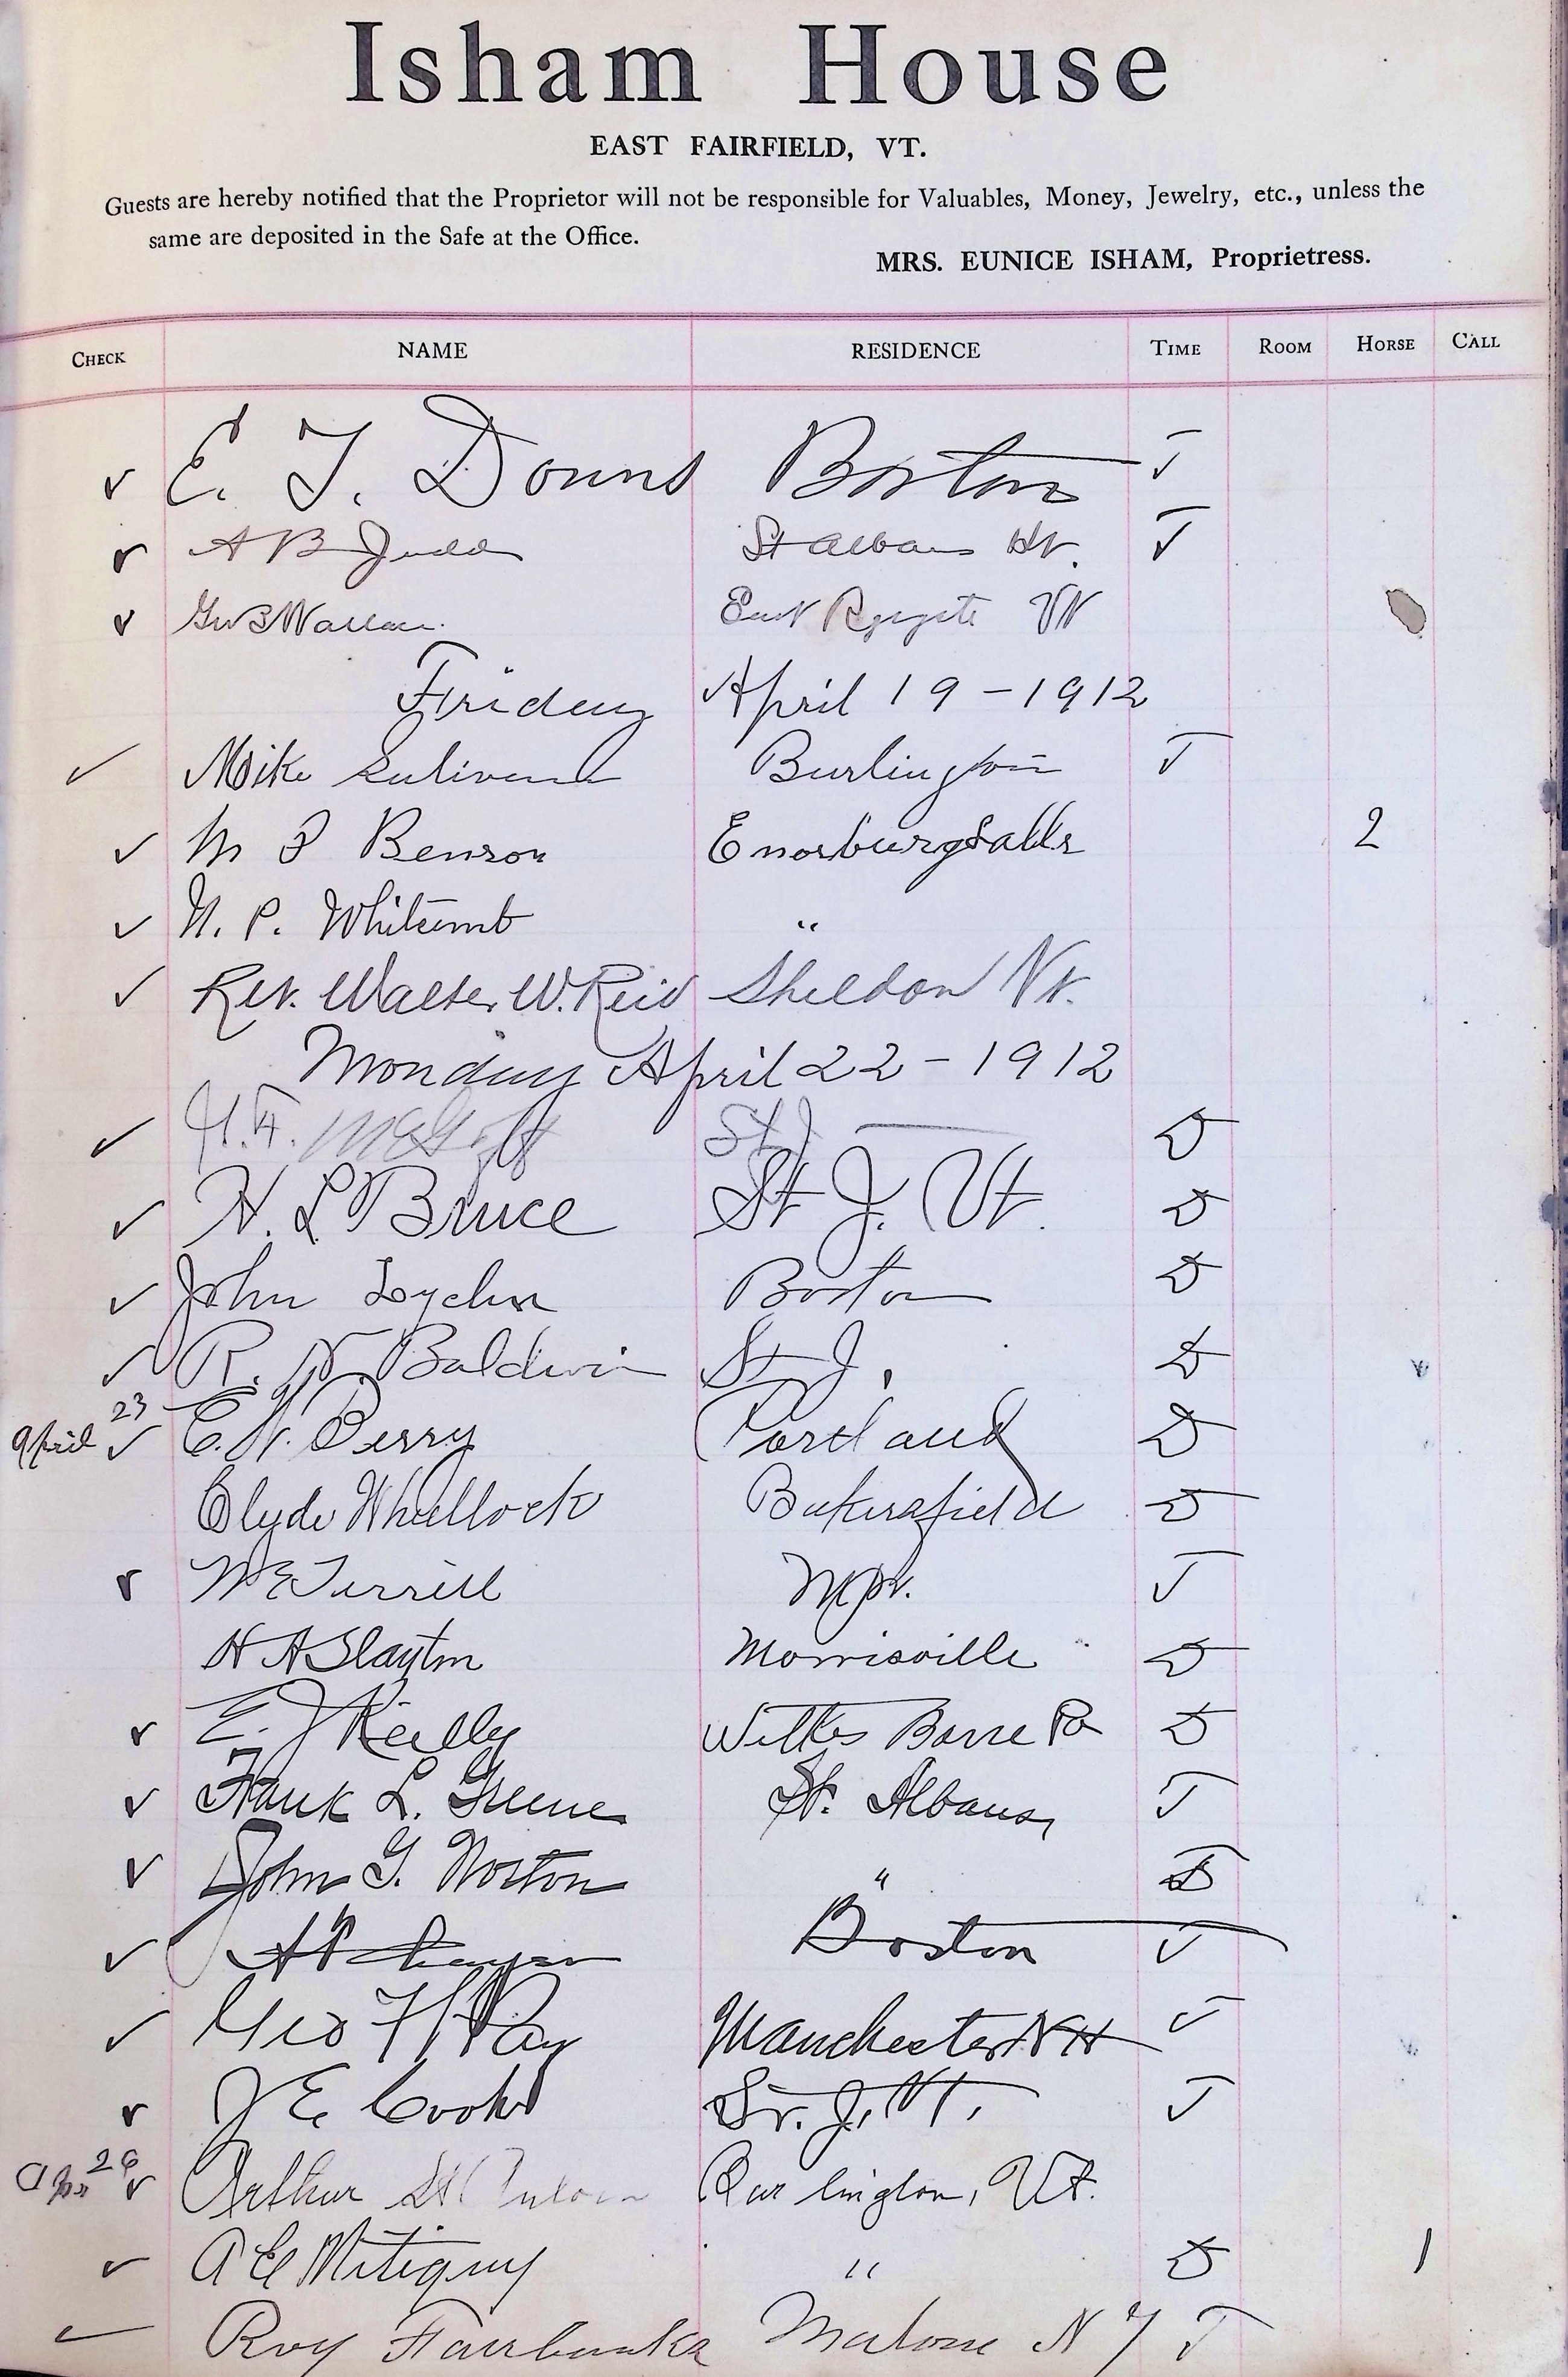 Isham House
EAST FAIRFIELD, VT.
Guests are hereby notified that the Proprietor will not be responsible for Valuables, Money, Jewelry, etc., unless the
same are deposited in the Safe at the Office.
MRS. EUNICE ISHAM, Proprietress.
CHECK NAME RESIDENCE TIME ROOM HORSE CALL
E. T. Downs Boston T
A B Judd St Albans Vt. T
Geo B Wallace East Ryegate Vt
Friday April 19 - 1912
Mike Sulivan Burlington T
M S Benson Enosburg Falls 2
N. P. Whitcomb "
Rev. Walter W. Reid Sheldon Vt.
Monday April 22 - 1912
St J
H. L Bruce St J. Vt. D
John Boston D
R. N. Baldwin St J. D
April 23 C. N. Berry Portland D
Clyde Whellock Bakersfield D
W E Terrill Mpv. T
H A Slayton Morrisville D
E. J Reilly Wilkes Barre Pa D
Frank L. Greene St. Albans, T
John G. Norton " D
Boston T
Geo H Ray Manchester N H T
J E Cook St. J. Vt. T
Apr 26 Arthur St Burlington, Vt.
A E Mitiguy " D 1
Roy Fairbanks Malone N Y T